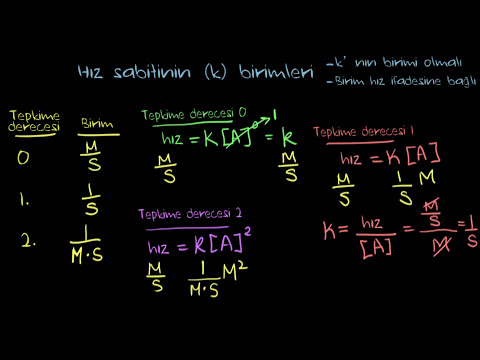 Hız sabitinin (k) birimleri
- k' nın birimi olmalı
- Birim hız ifadesine bağlı
Tepkime derecesi Birim
0 M/S
1. 1/S
2. 1/M·S
Tepkime derecesi 0
hız = K[A]⁰ = k
1
M/S M/S
Tepkime derecesi 1
hız = K[A]
M/S 1/S M
K = hız/[A] = M/S/M = 1/S
Tepkime derecesi 2
hız = K[A]²
M/S 1/M·S M²